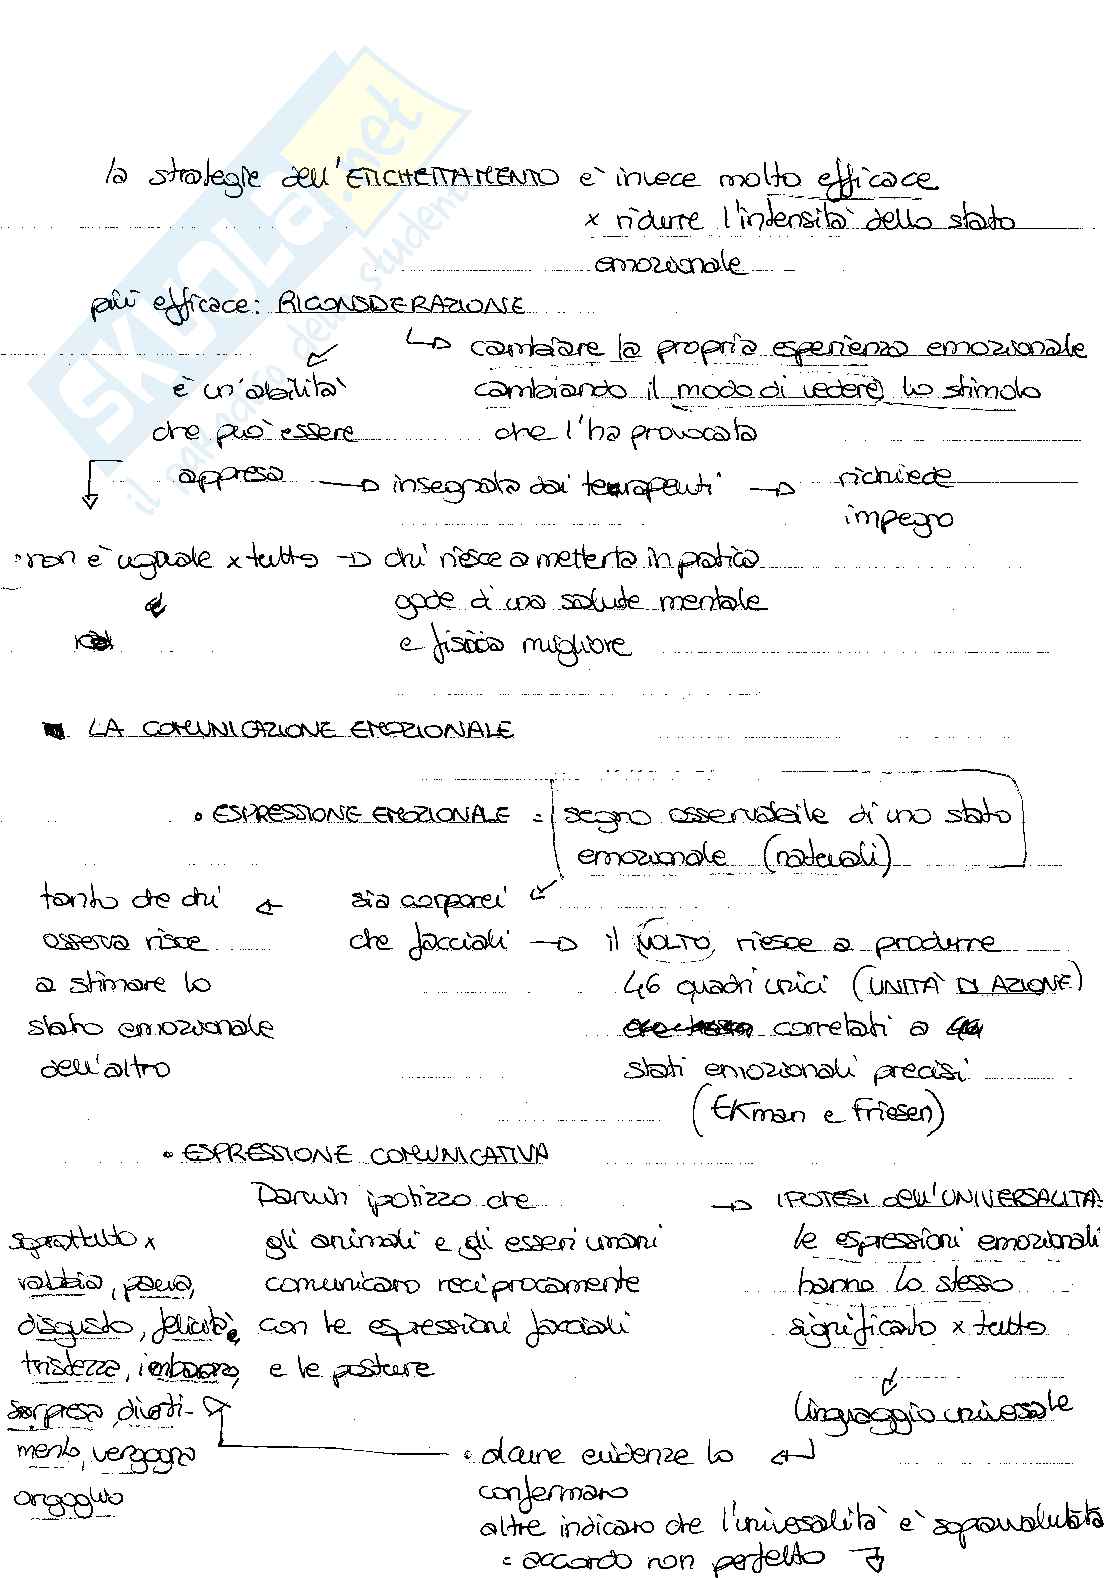 la strategie dell'ETICHETTAMENTO è invece molto efficace
x ridurre l'intensità dello stato
emozionale
più efficace: RICONSIDERAZIONE
cambiare la propria esperienza emozionale
cambiando il modo di vedere lo stimolo
che l'ha provocata
è un'abilità
che può essere
appresa → insegnata dai terapeuti → richiede
impegno
• non è uguale x tutto → chi riesce a metterla in pratica
gode di una salute mentale
e fisica migliore
LA COMUNICAZIONE EMOZIONALE
• ESPRESSIONE EMOZIONALE = segno osservabile di uno stato
emozionale (naturali)
sia corporei
che facciali → il VOLTO, riesce a produrre
46 quadri unici (UNITÀ DI AZIONE)
correlati a
stati emozionali precisi
(Ekman e Friesen)
tanto che chi
osserva risce
a stimare lo
stato emozionale
dell'altro
• ESPRESSIONE COMUNICATIVA
Darwin ipotizzo che
gli animali e gli esseri umani
comunicano reciprocamente
con le espressioni facciali
e le posture
→ IPOTESI dell'UNIVERSALITÀ:
le espressioni emozionali
hanno lo stesso
significato x tutto
linguaggio universale
• alcune evidenze lo
confermano
altre indicano che l'universalità è sopravalutata
= accordo non perfetto
soprattutto x
rabbia, paura,
disgusto, felicità,
tristezza, imbarazzo,
sorpresa, diverti-
mento, vergogna
orgoglio
SKUOLA.net
il paradiso dello studente